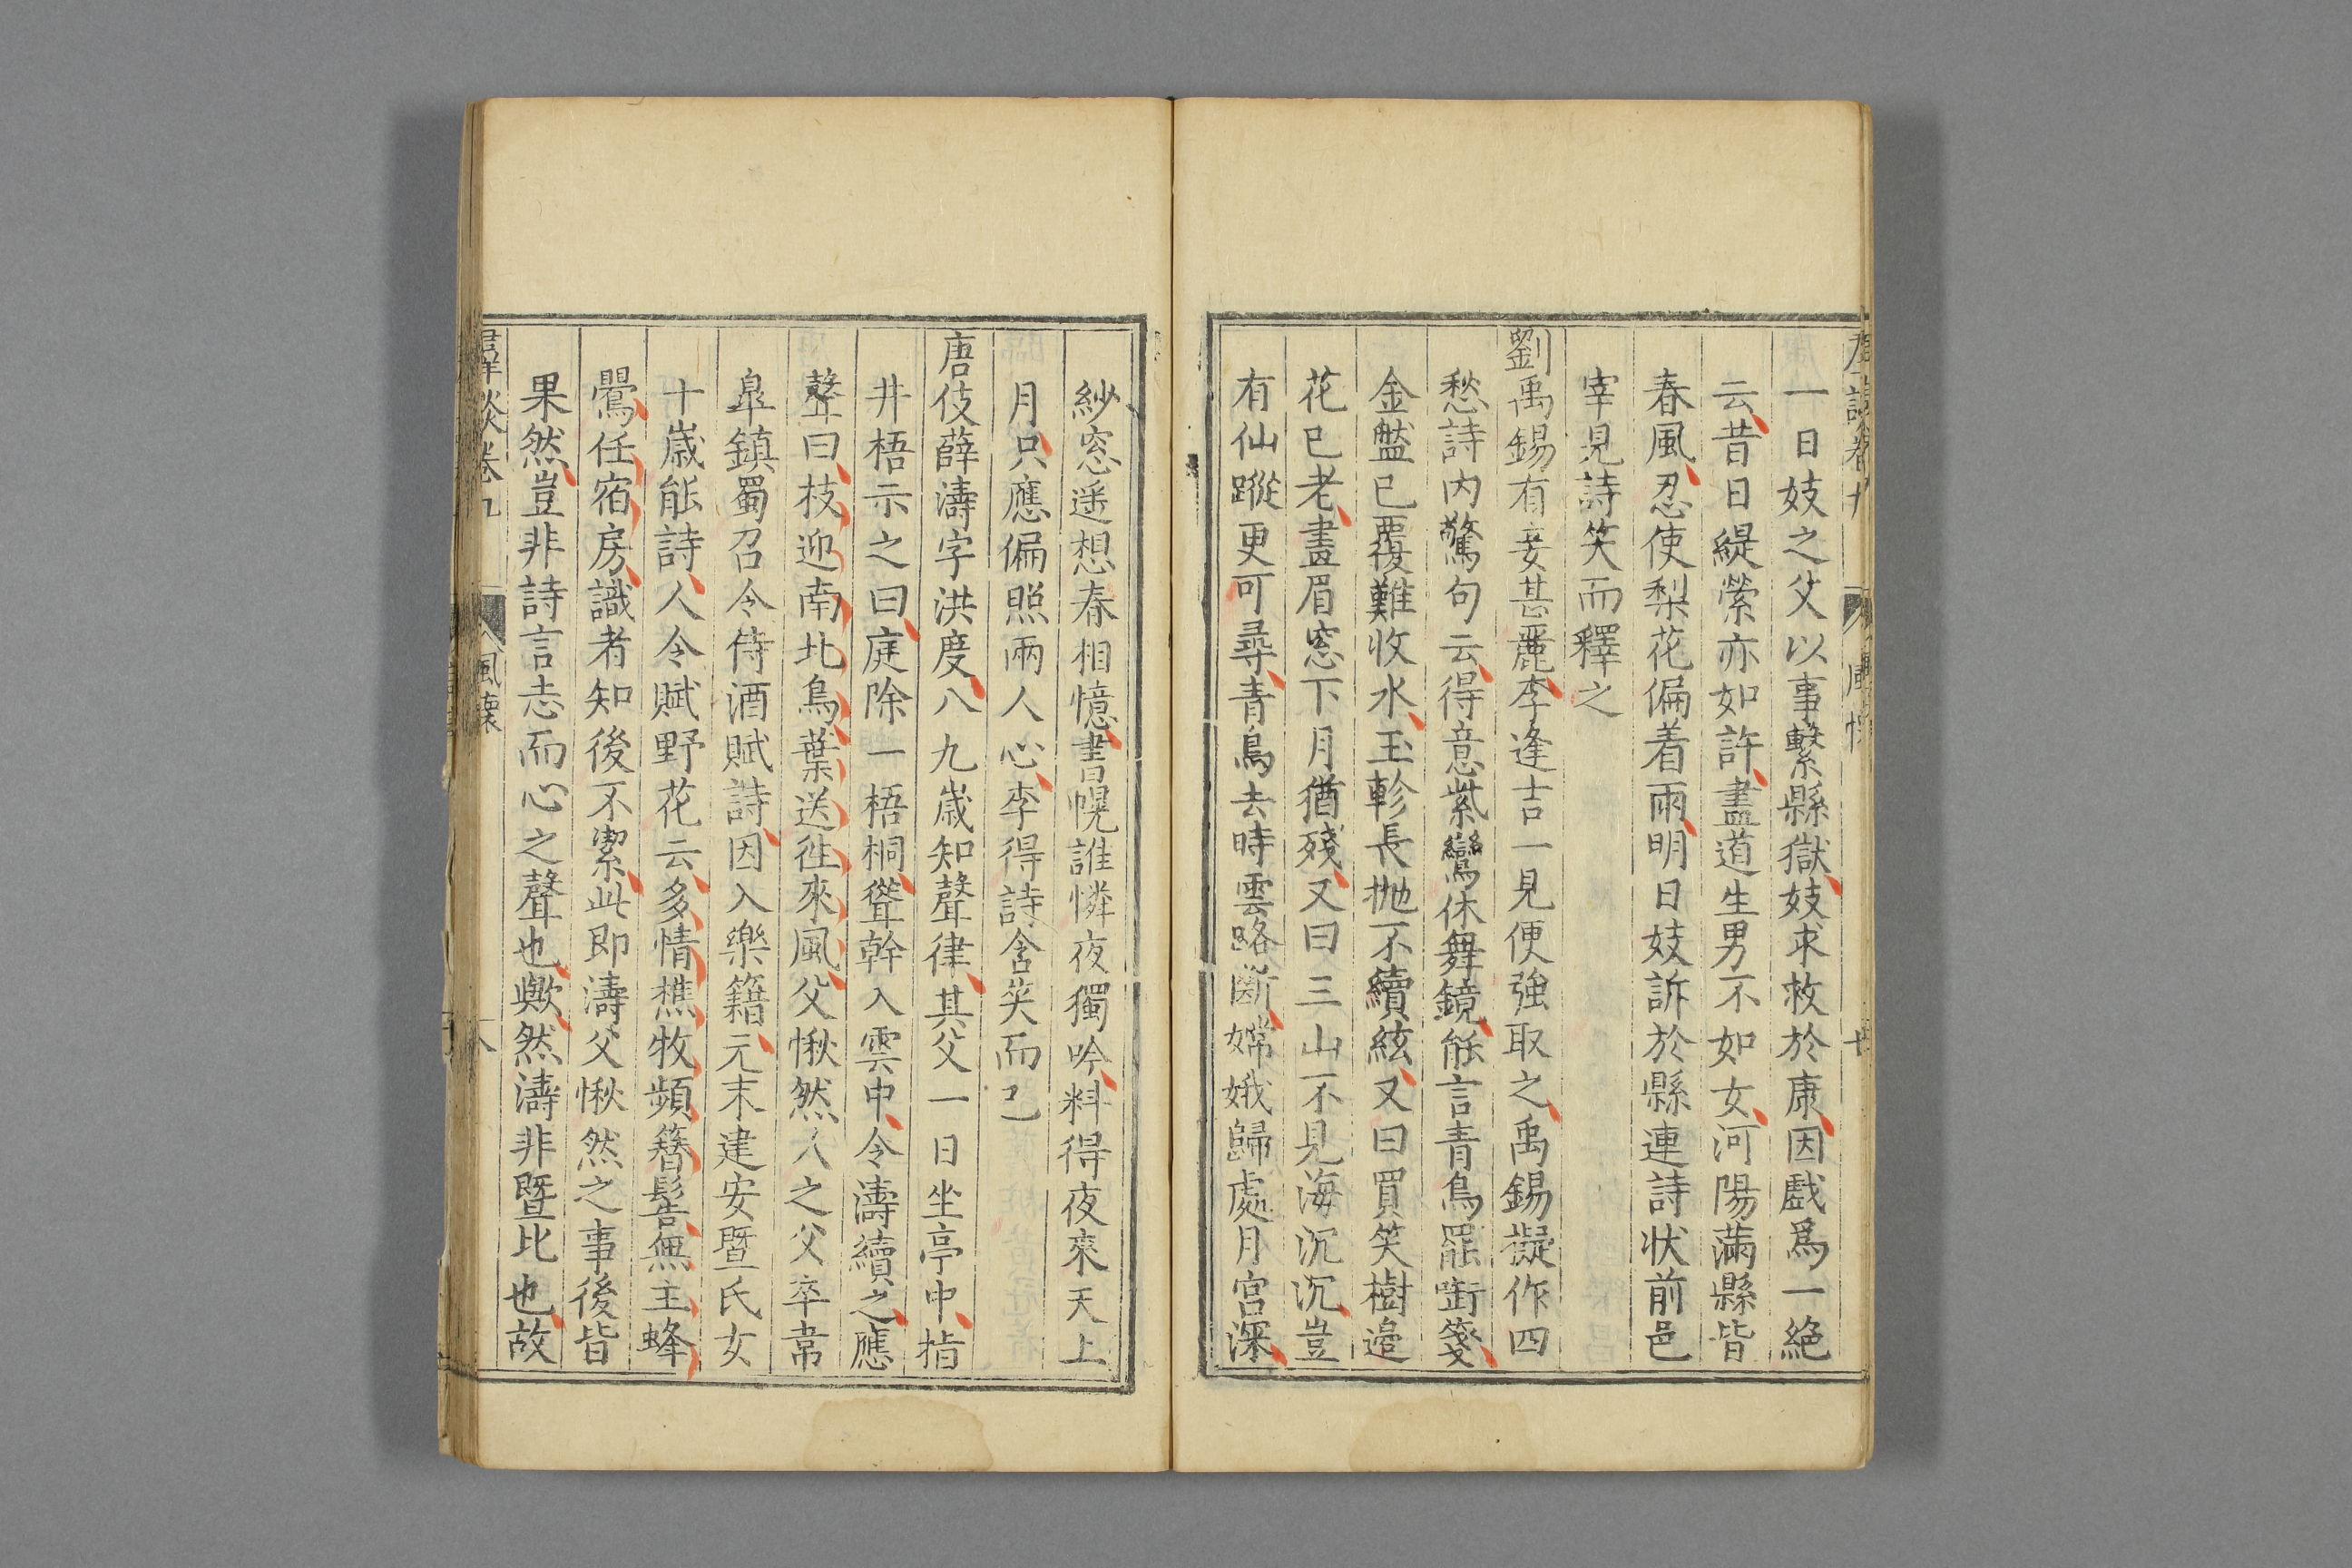 一日妓之父以事繫縣獄妓求救於康因戲爲一絕
云昔日緹縈亦如許盡道生男不如女河陽滿縣皆
春風忍使梨花偏着雨明日妓訴於縣連詩状前邑
宰見詩笑而釋之
劉禹錫有妾甚麗李逢吉一見便強取之禹錫擬作四
愁詩内驚句云得意紫鸞休舞鏡能言青鳥罷銜箋
金盤已覆難收水玉軫長抛不續絃又曰買笑樹邉
花已老畫眉窓下月猶殘又曰三山不見海沉沉豈
有仙蹤更可尋青鳥去時雲路斷嫦娥歸處月宮深
紗窓遥想春相憶書幌誰憐夜獨吟料得夜來天上
月只應偏照兩人心李得詩含笑而已
唐伎薛濤字洪度八九歲知聲律其父一日坐亭中指
井梧示之曰庭除一梧桐聳幹入雲中令濤續之應
聲曰枝迎南北鳥葉送徃來風父愀然久之父卒韋
皐鎮蜀召令侍酒賦詩因入樂籍元末建安曁氏女
十歲能詩人令賦野花云多情樵牧頻簪髻無主蜂
鶯任宿房識者知後不潔此即濤父愀然之事後皆
果然豈非詩言志而心之聲也歟然濤非曁比也故
羣談卷九
風懷